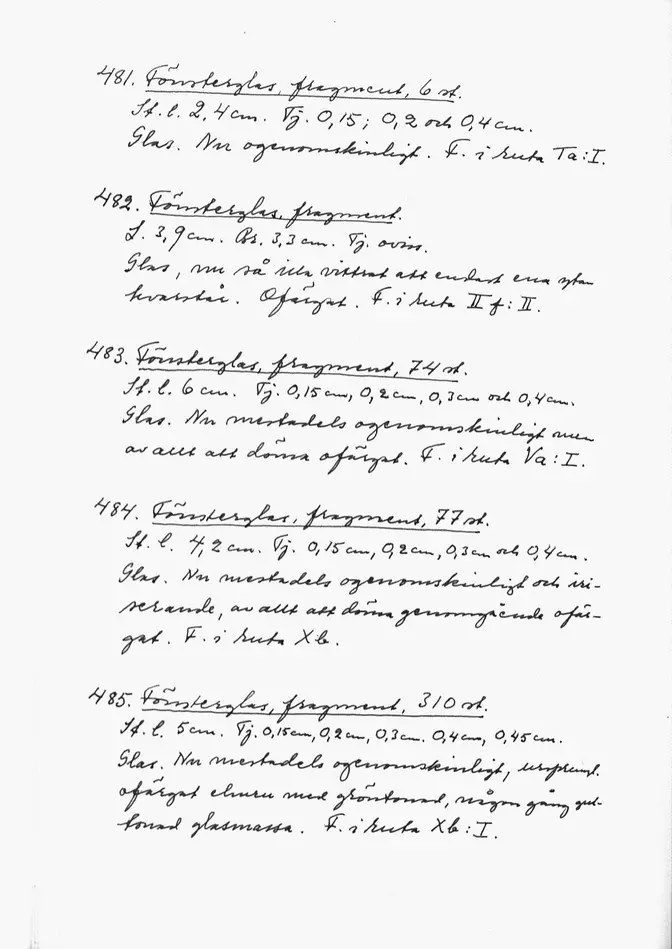 481. Fönsterglas, fragment, 6 st.
St. l. 2,4 cm. Tj. 0,15; 0,2 och 0,4 cm.
Glas. Nu ogenomskinligt. F. i ruta Ta:I.
482. Fönsterglas, fragment.
L. 3,9 cm. Br. 3,3 cm. Tj. oviss.
Glas, nu så illa vittrat att endast ena ytan
kvarstår. Ofärgat. F. i ruta II f:II.
483. Fönsterglas, fragment, 74 st.
St. l. 6 cm. Tj. 0,15 cm, 0,2 cm, 0,3 cm och 0,4 cm.
Glas. Nu mestadels ogenomskinligt men
av allt att döma ofärgat. F. i ruta Va:I.
484. Fönsterglas, fragment, 77 st.
St. l. 4,2 cm. Tj. 0,15 cm, 0,2 cm, 0,3 cm och 0,4 cm.
Glas. Nu mestadels ogenomskinligt och iri-
serande, av allt att döma genomgående ofär-
gat. F. i ruta Xb.
485. Fönsterglas, fragment, 310 st.
St. l. 5 cm. Tj. 0,15 cm, 0,2 cm, 0,3 cm. 0,4 cm, 0,45 cm.
Glas. Nu mestadels ogenomskinligt, ursprungl.
ofärgat ehuru med gröntonad, någon gång gul-
tonad glasmassa. F. i ruta Xb:I.